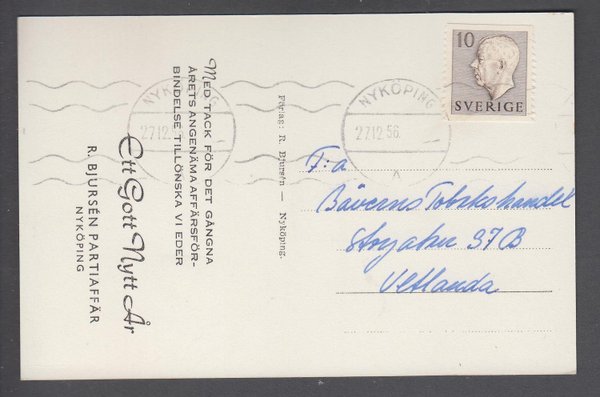 MED TACK FÖR DET GÅNGNA
ÅRETS ANGENÄMA AFFÄRSFÖR-
BINDELSE TILLÖNSKA VI EDER
Ett Gott Nytt År
R. BJURSÉN PARTIAFFÄR
NYKÖPING
Förlag: R. Bjursén — Nyköping.
NYKÖPING
27 12 56
NYKÖPING
27 12 56
A
10
SVERIGE
F:a
Bäverns Tobakshandel
Storgatan 37B
Vetlanda